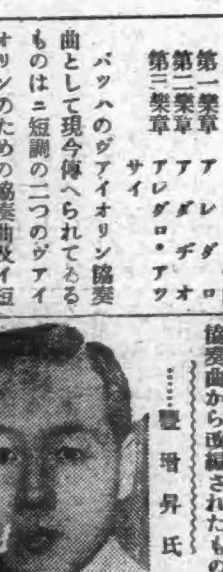 第一楽章　アレグロ
第二楽章　アダヂオ
第三楽章　アレグロ・アッ
サイ
バッハのヴァイオリン協奏
曲として現今傳へられてゐる
ものはニ短調の二つのヴァイ
オリンのための協奏曲及イ短
協奏曲から改編されたもの
……豐増昇氏